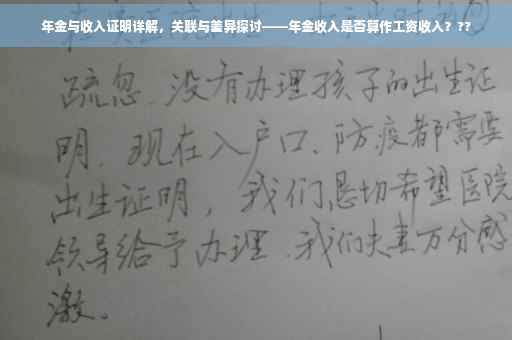 年金与收入证明详解，关联与差异探讨——年金收入是否算作工资收入？??
疏忽.没有办理孩子的出生证
明.现在入户口、防疫都需要
出生证明，我们恳切希望医院
领导给予办理.我们夫妻万分感
激。